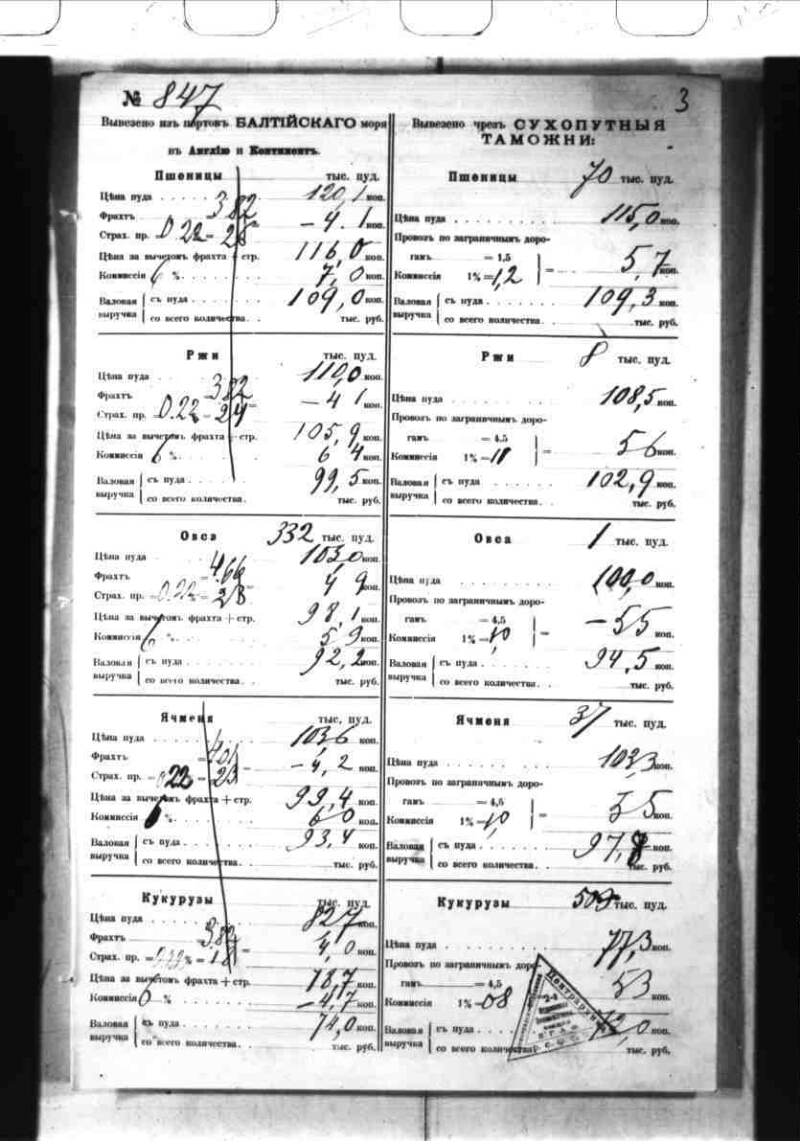 № 847
3
Вывезено изъ портовъ БАЛТІЙСКАГО моря
въ Англію и Континентъ.
Пшеницы тыс. пуд.
Цѣна пуда 120,1 коп.
Фрахтъ 3,82
Страх. пр. 0.22 = 28 — 4.1 коп.
Цѣна за вычетомъ фрахта + стр. 116,0 коп.
Коммиссія 6 %. 7,0 коп.
Валовая выручка съ пуда 109,0 коп.
со всего количества тыс. руб.
Ржи тыс. пуд.
Цѣна пуда 110,0 коп.
Фрахтъ 3,82
Страх. пр. 0.22 = 24 — 4 1 коп.
Цѣна за вычетомъ фрахта + стр. 105,9 коп.
Коммиссія 6 %. 6 4 коп.
Валовая выручка съ пуда 99,5 коп.
со всего количества. тыс. руб.
Овса 332 тыс. пуд.
Цѣна пуда 103,0 коп.
Фрахтъ = 4,66
Страх. пр. = 0.22% = 23 4 9 коп.
Цѣна за вычетомъ фрахта + стр. 98,1 коп.
Коммиссія 6 %. 5 9 коп.
Валовая выручка съ пуда 92,2 коп.
со всего количества. тыс. руб.
Ячменя тыс. пуд.
Цѣна пуда 103,6 коп.
Фрахтъ = 4,01
Страх. пр. = 0,22 = 23 — 4,2 коп.
Цѣна за вычетомъ фрахта + стр. 99,4 коп.
Коммиссія 6 %. 6 0 коп.
Валовая выручка съ пуда 93,4 коп.
со всего количества. тыс. руб.
Кукурузы тыс. пуд.
Цѣна пуда 82,7 коп.
Фрахтъ 3,82
Страх. пр. = 0,22% = 4,0 коп.
Цѣна за вычетомъ фрахта + стр. 78,7 коп.
Коммиссія 6 % — 4,7 коп.
Валовая выручка съ пуда 74,0 коп.
со всего количества. тыс. руб.
Вывезено чрезъ СУХОПУТНЫЯ
ТАМОЖНИ:
Пшеницы 70 тыс. пуд.
Цѣна пуда 115,0 коп.
Провозъ по заграничнымъ доро-
гамъ = 4,5
Коммиссія 1% = 1,2 = 5,7 коп.
Валовая выручка съ пуда 109,3 коп.
со всего количества. тыс. руб.
Ржи 8 тыс. пуд.
Цѣна пуда 108,5 коп.
Провозъ по заграничнымъ доро-
гамъ = 4,5
Коммиссія 1% = 11 = 5 6 коп.
Валовая выручка съ пуда 102,9 коп.
со всего количества. тыс. руб.
Овса 1 тыс. пуд.
Цѣна пуда 100,0 коп.
Провозъ по заграничнымъ доро-
гамъ = 4,5
Коммиссія 1% = 1,0 = — 5 5 коп.
Валовая выручка съ пуда 94,5 коп.
со всего количества. тыс. руб.
Ячменя 37 тыс. пуд.
Цѣна пуда 103,3 коп.
Провозъ по заграничнымъ доро-
гамъ = 4,5
Коммиссія 1% = 1,0 = 5 5 коп.
Валовая выручка съ пуда 97,8 коп.
со всего количества. тыс. руб.
Кукурузы 509 тыс. пуд.
Цѣна пуда 77,3 коп.
Провозъ по заграничнымъ доро-
гамъ = 4,5
Коммиссія 1% = 08 5 3 коп.
Валовая выручка съ пуда 72,0 коп.
со всего количества тыс. руб.
Центрархив